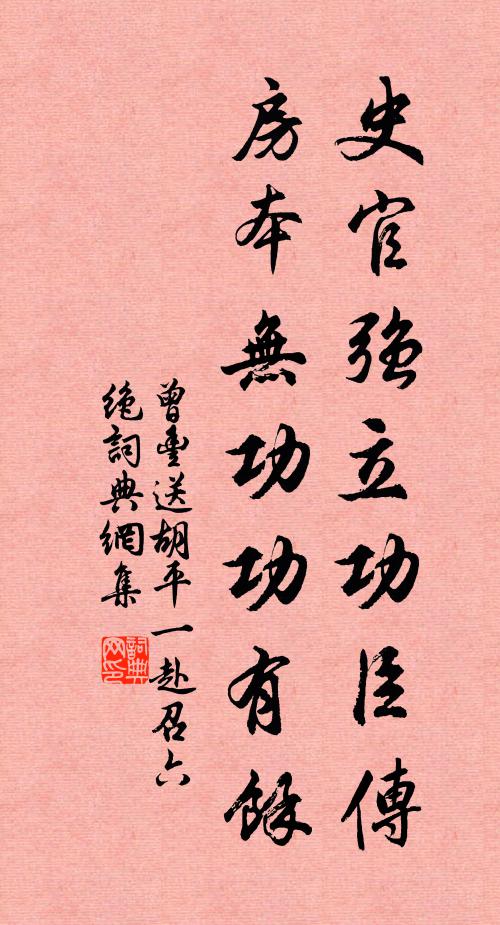 史官強立功臣傳
房本無功功有餘
曾豐送胡平一赴召六
絶詞典網集
詞典网印